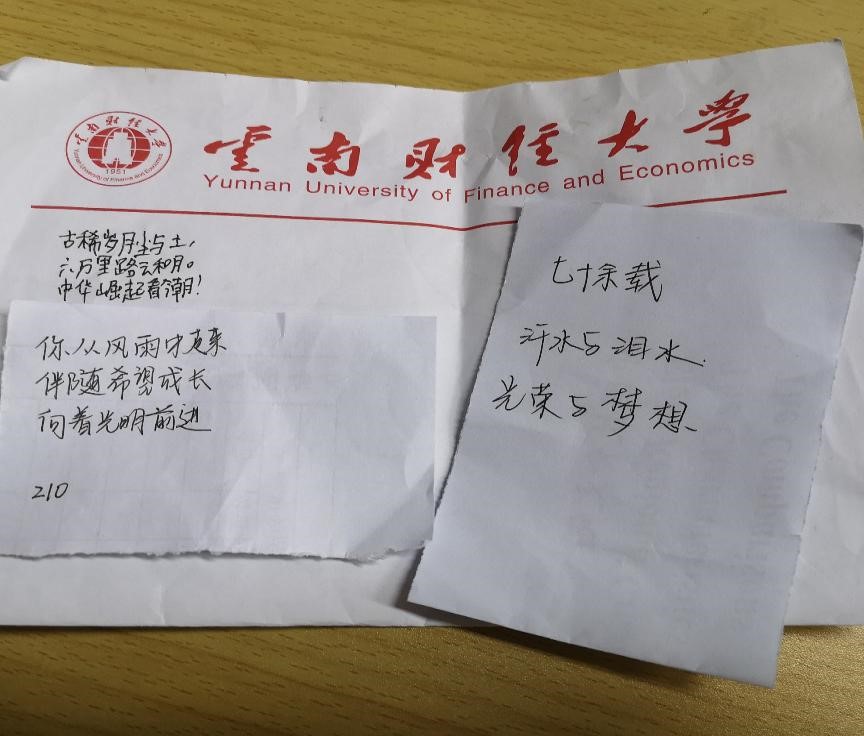 雲南财经大學
Yunnan University of Finance and Economics
雲南财经大學
Yunnan University of Finance and Economics
1951
古稀岁月尘与土，
六万里路云和月。
中华崛起看今朝！
你从风雨中走来
伴随希望成长
向着光明前进
210
七十余载
汗水与泪水
光荣与梦想